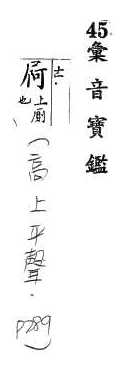 45.彙音寶鑑
士·
屙上廁也
(高上平聲.P289)